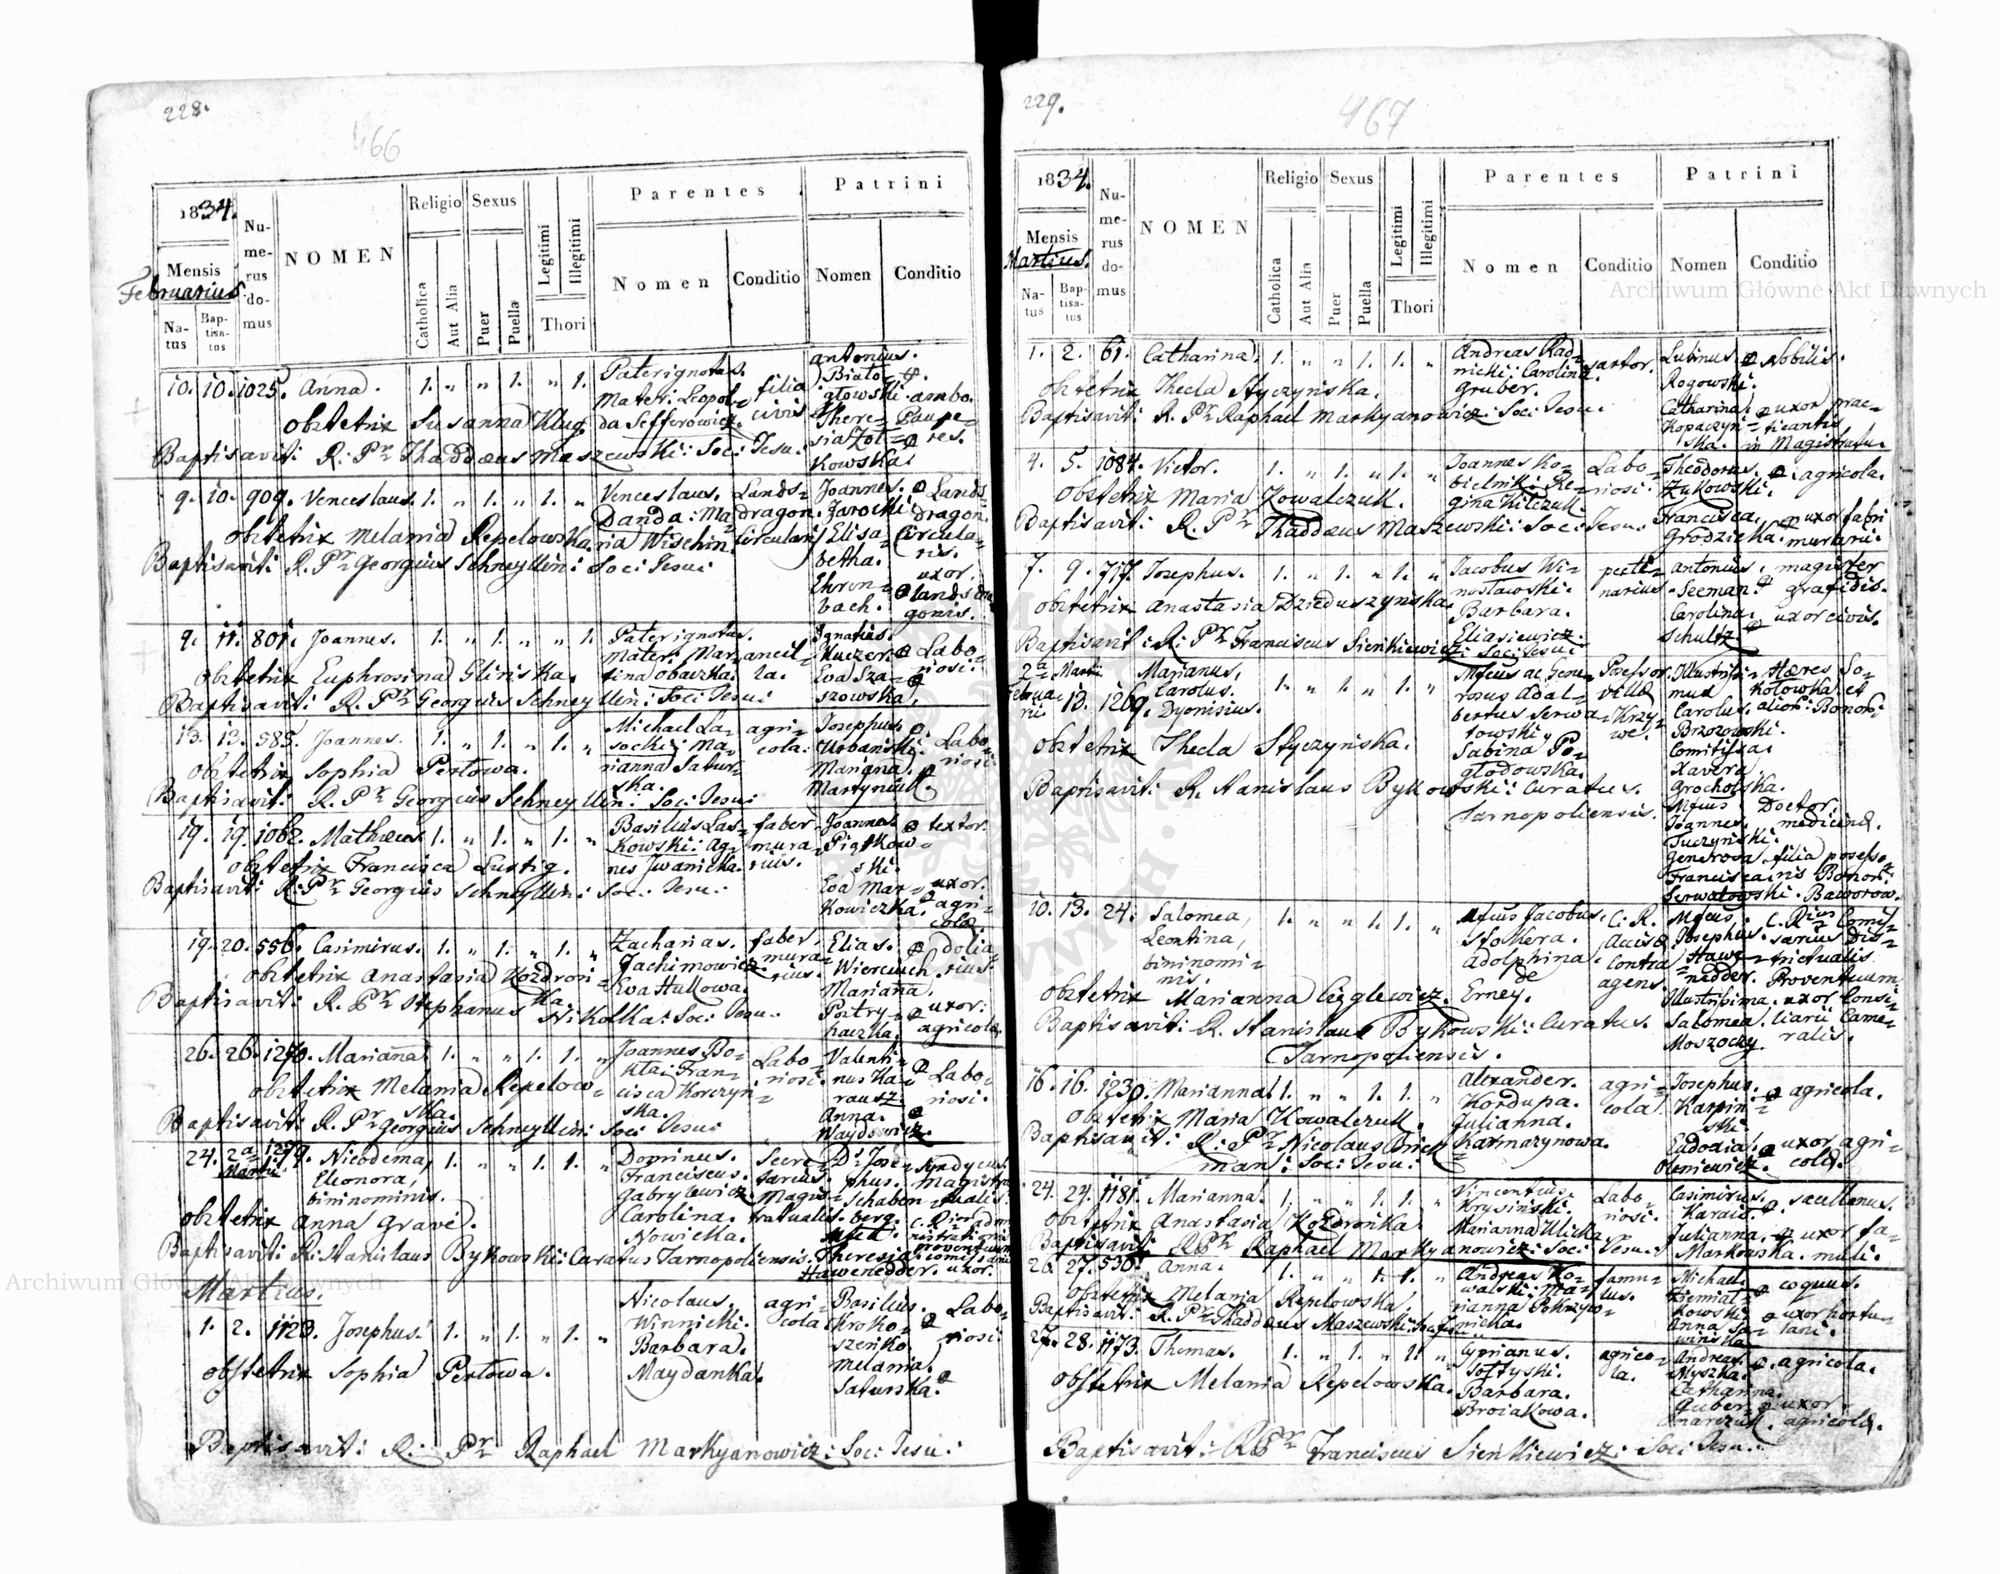 228.
466
1834.
Mensis
Februarius.
Natus
Baptisatus
Numerus domus
NOMEN
Religio
Catholica
Aut Alia
Sexus
Puer
Puella
Legitimi
Illegitimi
Thori
Parentes
Nomen
Conditio
Patrini
Nomen
Conditio
10. 10. 1025. Anna. 1. „ „ 1. „ 1.
Pater ignotus.
Mater: Leopol=
da Sefferowicz.
filia
civis
Antonius.
Biało=
głowski.
There=
sia Żół=
kowska.
ambo.
Paupe=
res.
Obstetrix Susanna Klug.
Baptisavit: R: Pr Thaddaeus Maszewski: Soc: Jesu:
9. 10. 909. Venceslaus. 1. „ 1. „ 1. „
Venceslaus.
Danda: Ma=
ria Wischin.
Lands=
dragon.
Circularis
Joannes.
Jarocki
Elisa=
betha.
Ehren=
bach.
Lands=
dragon.
Circula=
ris.
uxor.
Landsdra
gonis.
Obstetrix Melania Repelowska.
Baptisavit: R. Pr Georgius Schneyllin: Soc: Jesu:
9. 11. 801. Joannes. 1. „ 1. „ „ 1.
Pater ignotus.
Mater: Mar=
tina Obaczka.
ancil=
la.
Ignatius.
Kuczer.
Eva Sza=
szowska.
Labo=
riosi.
Obstetrix Euphrosina Glinska.
Baptisavit: R. Pr Georgius Schneyllin: Soc: Jesu:
13. 13. 585. Joannes. 1. „ 1. „ 1. „
Michael La=
socki: Ma=
rianna Satur=
ska.
agri=
cola.
Josephus.
Urbański.
Mariana.
Martyniuk.
Labo=
riosi.
Obstetrix Sophia Perłowa.
Baptisavit: R. Pr Georgius Schneyllin: Soc: Jesu:
19. 19. 1062. Mathaeus. 1. „ 1. „ 1. „
Basilius Las=
kowski: Ag=
nes Iwanicka.
faber
mura=
rius.
Joannes.
Piątkow=
ski.
Eva Mar=
kowiczka.
textor.
uxor.
agri=
colae
Obstetrix Francisca Lustig.
Baptisavit: R. Pr Georgius Schneyllin: Soc: Jesu:
19. 20. 556. Casimirus. 1. „ 1. „ 1. „
Zacharias.
Jachimowicz.
Eva Hukowa.
faber.
mura=
rius.
Elias.
Wierciuch.
Mariana.
Pastry=
haczka.
dolia=
rius.
uxor:
agricolae
Obstetrix Anastasia Kozdroń=
ka.
Baptisavit: R. Pr Stephanus Nikolka: Soc: Jesu:
26. 26. 1270. Mariana. 1. „ „ 1. 1. „
Joannes Bo=
kta: Fran=
cisca Korczyn=
ska.
Labo=
riosi.
Valenti=
nus Ka=
rausz.
Anna.
Waydowicz.
Labo=
riosi.
Obstetrix Melania Repelow=
ska.
Baptisavit: R. Pr Georgius Schneyllin: Soc: Jesu:
24. 2a Martii 1279. Nicodema,
Eleonora,
bininominis.
1. „ „ 1. 1. „
Dominus.
Franciscus.
Gabrylewicz.
Carolina.
Nowicka.
Secre=
tarius
Magis=
tratualis.
Ds Jose=
phus.
Schaben=
berg.
Theresia
Hawenedder.
Syndycus
magistra
tualis.
uxor.
Obstetrix Anna Gravé.
Baptisavit: R. Stanislaus Bykowski: Curatus Tarnopoliensis.
Martius.
1. 2. 1123. Josephus. 1. „ 1. „ 1. „
Nicolaus.
Winnicki.
Barbara.
Maydanka.
agri=
cola.
Basilius.
Kroko=
szenko.
Melania.
Saturska.
Labo=
riosi.
Obstetrix Sophia Perłowa.
Baptisavit: R: Pr Raphael Markyanowicz: Soc: Jesu:
229.
467
1834.
Mensis
Martius.
Natus
Baptisatus
Numerus domus
NOMEN
Religio
Catholica
Aut Alia
Sexus
Puer
Puella
Legitimi
Illegitimi
Thori
Parentes
Nomen
Conditio
Patrini
Nomen
Conditio
1. 2. 61. Catharina. 1. „ „ 1. 1. „
Andreas Rad=
nicki: Carolina
Gruber.
sartor.
Lucinus
Rogowski.
Catharina.
Kopaczyń=
ska.
Nobilis.
uxor prac=
ticantis
in Magistratu.
Obstetrix Thecla Styczyńska.
Baptisavit: R. Pr Raphael Markyanowicz: Soc: Jesu:
4. 5. 1084. Victor. 1. „ 1. „ 1. „
Joannes Ko=
bielnik: Re=
gina Kilczuk.
Labo=
riosi.
Theodorus.
Żukowski.
Francisca.
Grodzicka.
agricola.
uxor fabri
murarii.
Obstetrix Maria Kowalczuk.
Baptisavit: R. Pr Thaddaeus Maszewski: Soc: Jesu:
7. 9. 717. Josephus. 1. „ 1. „ 1. „
Jacobus Wi=
nosławski.
Barbara.
Eliasiewicz.
pecti=
narius
Antonius.
Seeman.
Carolina.
Schultz
magister
grafidis.
uxor civis.
Obstetrix Anastasia Dzieduszyńska.
Baptisavit: R: Pr Franciscus Sienkiewicz: Soc: Jesu:
2a Februarii Martii 13. 1269.
Marianus,
Carolus.
Dyonisius.
1. „ 1. „ 1. „
Mfcus ac Gene
rosus Adal=
bertus Serwa=
towski,
Sabina Po=
głodowska.
Possessor
villae
Krzy=
we.
Illustrissi=
mus
Carolus.
Brzozowski.
Comitissa.
Xavera
Grocholska.
Mfcus
Joannes.
Tuczyński.
Generosa
Francisca
Serwatowska.
Haeres So=
kołowka et
alior: Bonor:
Doctor.
medicinae.
filia posesso
ris Bonor:
Baworow.
Obstetrix Thecla Styczyńska.
Baptisavit: R. Stanislaus Bykowski: Curatus.
Tarnopoliensis.
10. 13. 24. Salomea,
Leontina,
bininomi=
nis.
1. „ „ 1. 1. „
Mfcus Jacobus.
Stokera.
Adolphina.
de
Erney.
C: R.
Accisae
contra
agens.
Mfcus.
Josephus.
Hawe=
nedder.
Illustrissima.
Salomea.
Moszocky.
C. Rius Comis
sarius Dis=
trictualis
Proventuum
uxor Consi=
liarii Came=
ralis.
Obstetrix Marianna Cięglewicz.
Baptisavit: R. Stanislaus Bykowski: Curatus.
Tarnopoliensis.
16. 16. 1230. Marianna. 1. „ „ 1. 1. „
Alexander.
Kordupa.
Julianna.
Karmazynowa.
agri=
cola.
Josephus.
Karpiń=
ski.
Eudoxia.
Oleniewicz.
agricola.
uxor agri=
colae.
Obstetrix Maria Kowalczuk.
Baptisavit: R: Pr Nicolaus Brick
man: Soc: Jesu:
24. 24. 1181. Marianna. 1. „ „ 1. 1. „
Vincentius.
Krysiński.
Marianna Klicka.
Labo
riosi.
Casimirus.
Karais.
Julianna.
Markowska.
sacellanus.
uxor fa=
muli.
Obstetrix Anastasia Kozdrońka.
Baptisavit: R Pr Raphael Markyanowicz: Soc: Jesu:
26. 27. 530. Anna. 1. „ „ 1. 1. „
Andreas Ko=
walski: Ma=
rianna Pokrzyw=
nicka.
famu=
lus.
Michael.
Ziemiał=
kowski.
Anna Sa=
wińska.
coquus.
uxor hortu=
lani.
Obstetrix Melania Repelowska.
Baptisavit: R. Pr Thaddaeus Maszewski: Soc: Jesu
27. 28. 1173. Thomas. 1. „ 1. „ 1. „
Cyprianus.
Sołtyski.
Barbara.
Broiakowa.
agrico=
la.
Andreas.
Myszka.
Catharina.
Guber=
narczuk.
agricola.
uxor
agricolae.
Obstetrix Melania Repelowska.
Baptisavit: R Pr Franciscus Sienkiewicz: Soc: Jesu:
Archiwum Główne Akt Dawnych
Archiwum Główne Akt Dawnych